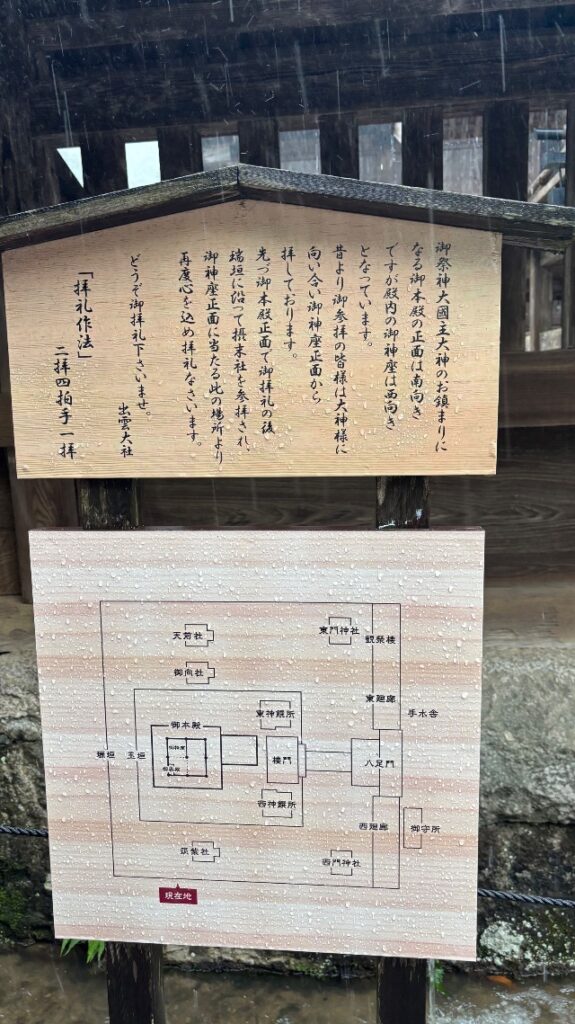 御祭神大國主大神のお鎮まりに
なる御本殿の正面は南向き
ですが殿内の御神座は西向き
となっています。
昔より御参拝の皆様は大神様に
向い合い御神座正面から
拝しております。
先づ御本殿正面で御拝礼の後
瑞垣に沿って摂末社を参拝され、
御神座正面に当たる此の場所より
再度心を込め拝礼なさいます。
どうぞ御拝礼下さいませ。
出雲大社
「拝礼作法」
二拝四拍手一拝
天前社
東門神社
観祭楼
御向社
東廻廊
手水舎
東神饌所
御本殿
御神座
瑞垣
玉垣
楼門
八足門
西神饌所
西廻廊
御守所
筑紫社
西門神社
現在地